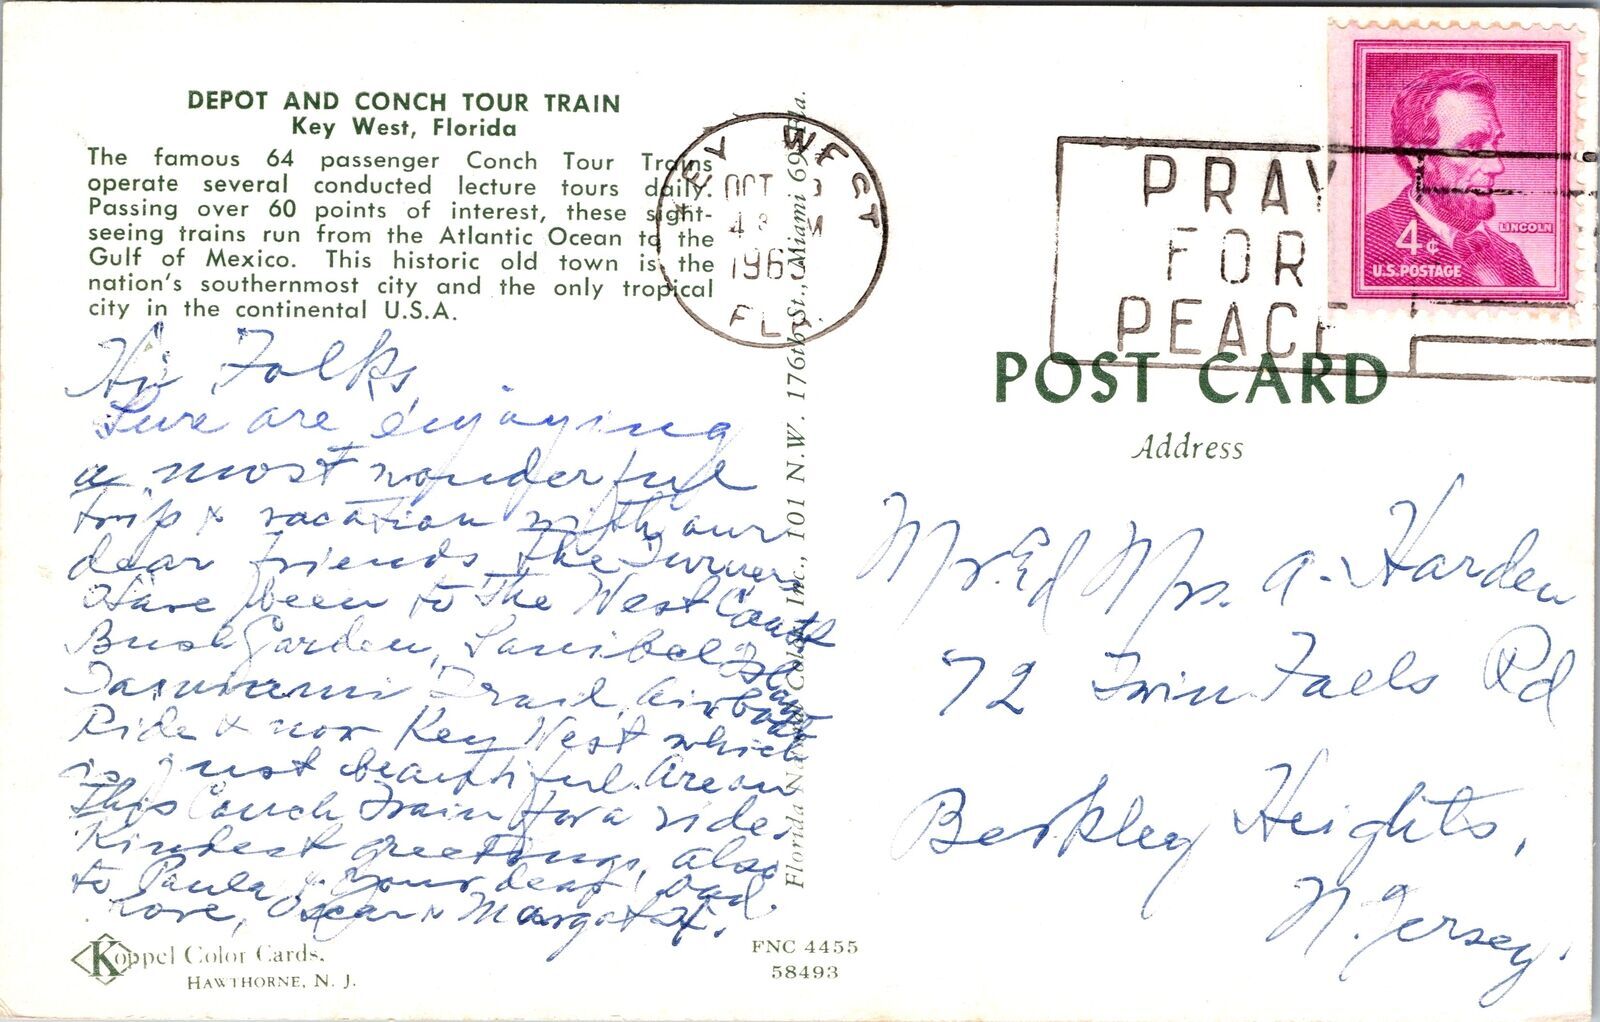 DEPOT AND CONCH TOUR TRAIN
Key West, Florida
The famous 64 passenger Conch Tour Trains
operate several conducted lecture tours daily.
Passing over 60 points of interest, these sight-
seeing trains run from the Atlantic Ocean to the
Gulf of Mexico. This historic old town is the
nation's southernmost city and the only tropical
city in the continental U.S.A.
Hi Folks,
Sure are enjoying
a most wonderful
trip & vacation with our
dear friends the Turners
Have been to the West Coast
Bush Garden, Sanibel Island
Tarmiami Trail, Airboat
Ride & now Key West which
is just beautiful. Are on
this Conch Train for a ride.
Kindest greetings, also
to Paula & your dear dad.
Love, Oscar &
Koppel Color Cards.
HAWTHORNE, N. J.
FNC 4455
58493
Florida Natural Color Inc., 101 N.W. 176th St., Miami 69, Fla.
KEY WEST
OCT
4 PM
196
FLA.
PRAY
FOR
PEACE
4¢
LINCOLN
U.S. POSTAGE
POST CARD
Address
Mr. Ed Mrs. A. Harden
72 Twin Falls Rd
Berkley Heights,
N. Jersey.